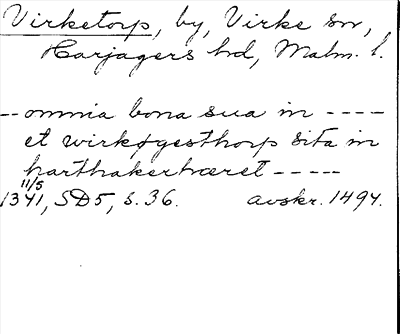 Virketorp, by, Virke sn,
Harjagers hd, Malm. l.
-- omnia bona sua in ----
et wirkøgesthorp sita in
harthakerhæret -----
11/5
1341, SD5, s. 36. avskr. 1494.